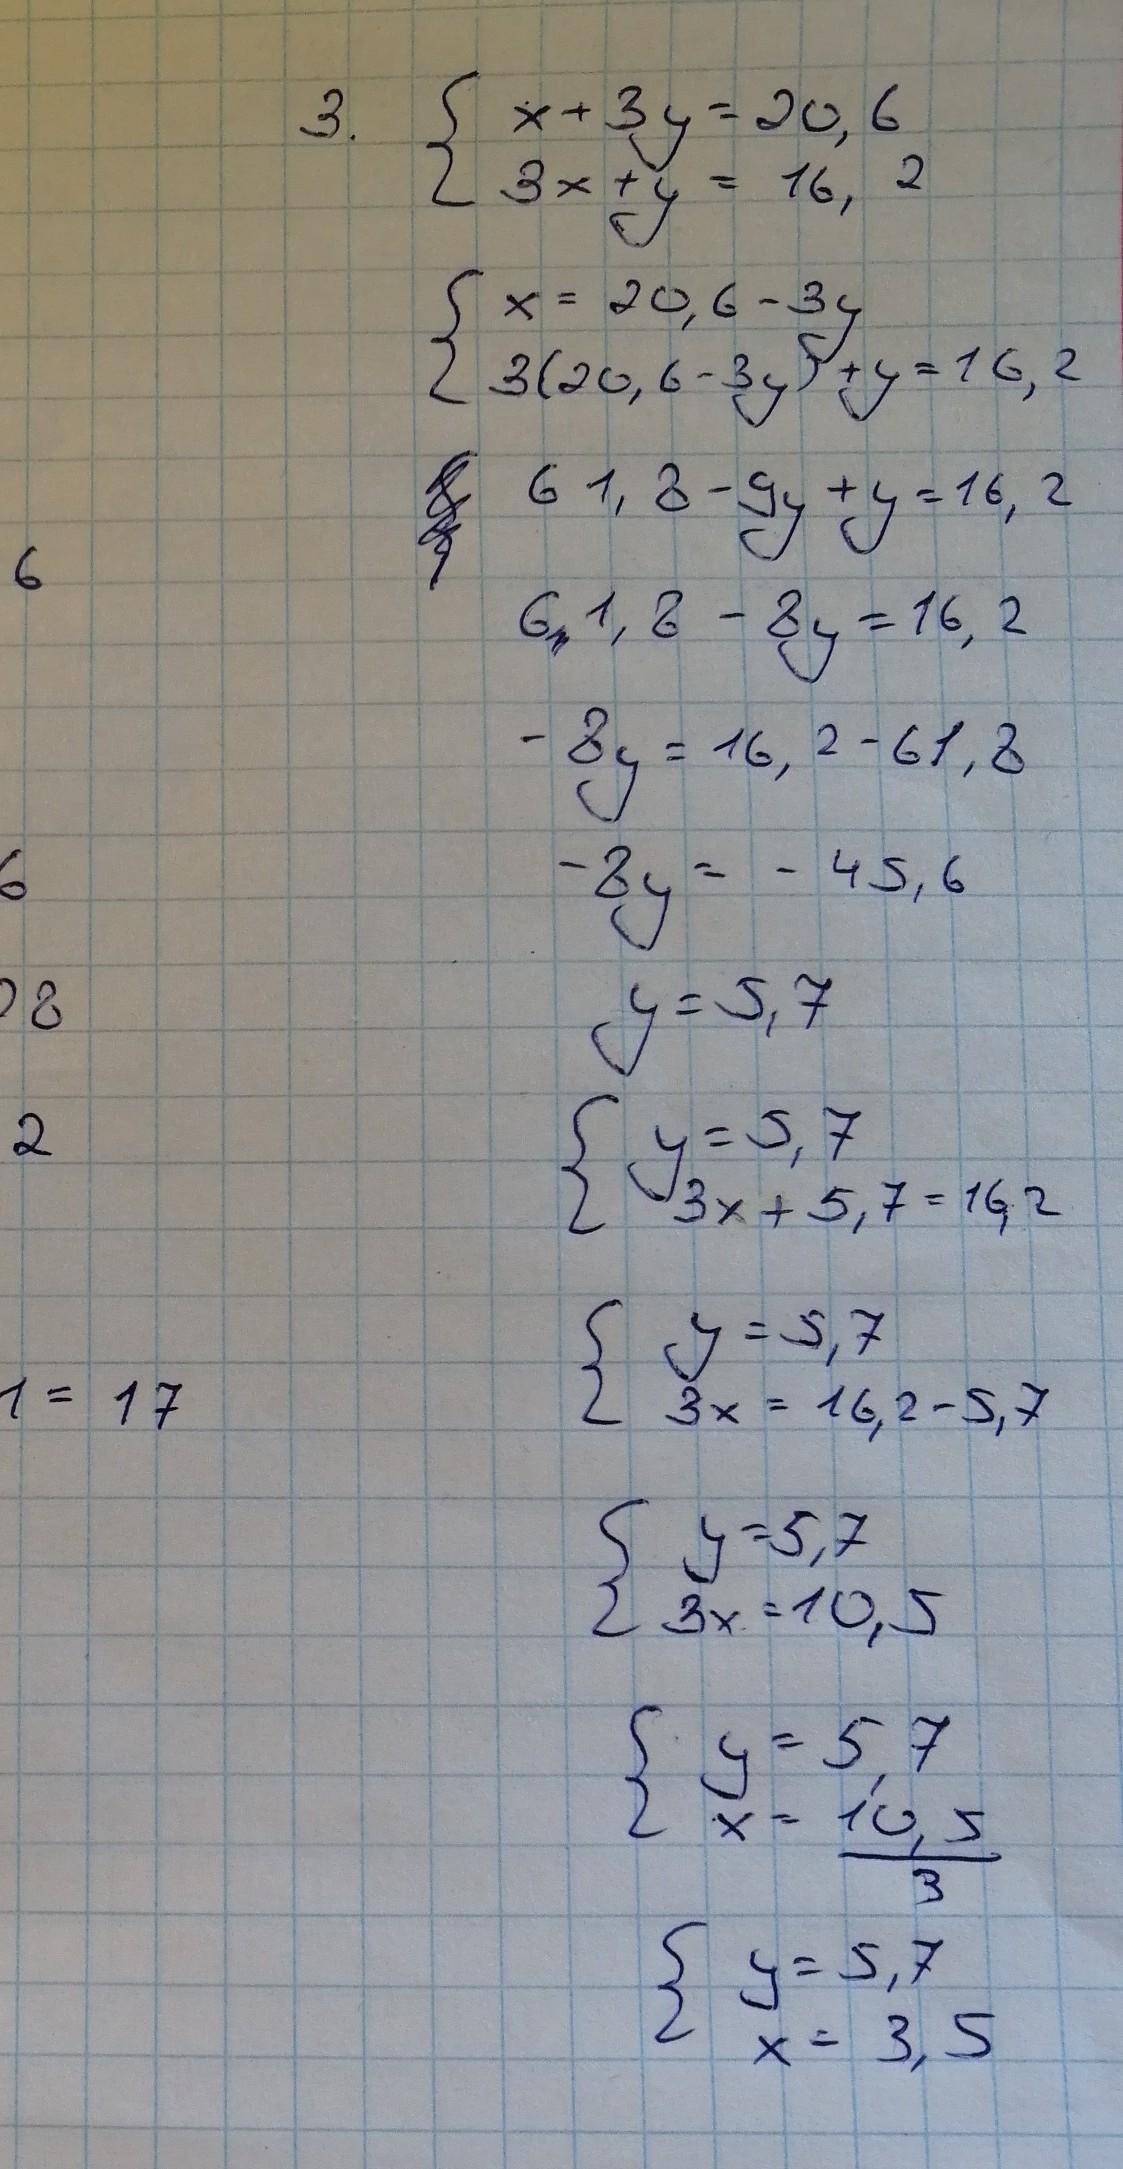 3. { x + 3y = 20,6
3x + y = 16,2
{ x = 20,6 - 3y
3(20,6 - 3y) + y = 16,2
61,8 - 9y + y = 16,2
6
61,8 - 8y = 16,2
- 8y = 16,2 - 61,8
6
- 8y = - 45,6
8
y = 5,7
2
{ y = 5,7
3x + 5,7 = 16,2
{ y = 5,7
1 = 17
3x = 16,2 - 5,7
{ y = 5,7
3x = 10,5
{ y = 5,7
x = 10,5
3
{ y = 5,7
x = 3,5